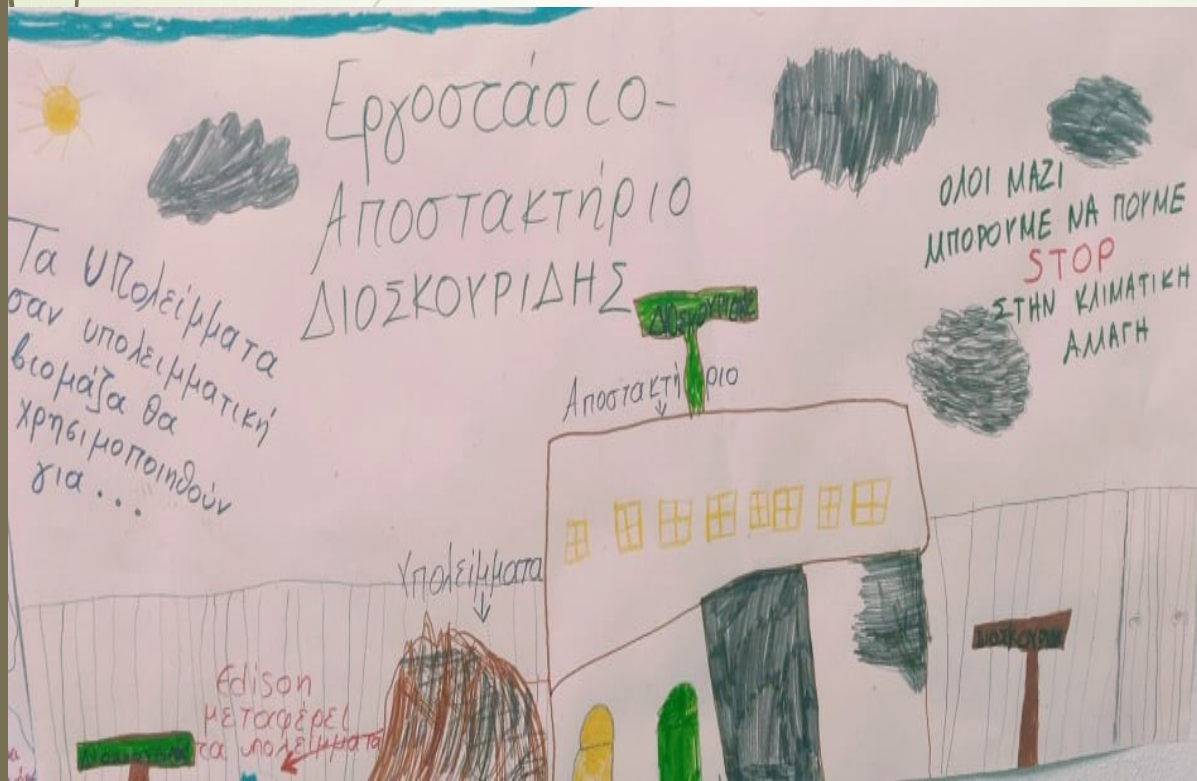 Εργοστάσιο-
Αποστακτήριο
ΔΙΟΣΚΟΥΡΙΔΗΣ
Τα υπολείμματα
σαν υπολειμματική
βιομάζα θα
χρησιμοποιηθούν
για...
ΟΛΟΙ ΜΑΖΙ
ΜΠΟΡΟΥΜΕ ΝΑ ΠΟΥΜΕ
STOP
ΣΤΗΝ ΚΛΙΜΑΤΙΚΗ
ΑΛΛΑΓΗ
Αποστακτήριο
Υπολείμματα
Edison
μεταφέρει
τα υπολείμματα